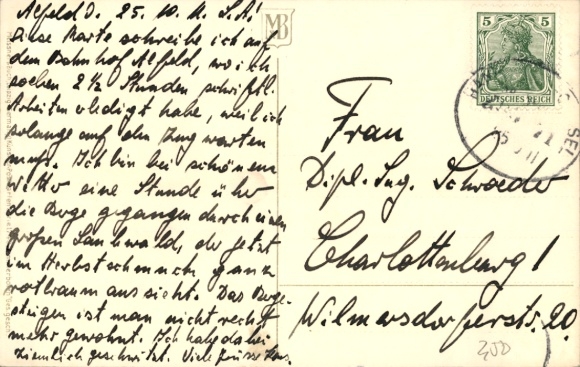 Alfeld d. 25. 10. 11. L. A.!
Diese Karte schreibe ich auf
dem Bahnhof Alfeld, wo ich
soeben 2 1/2 Stunden schriftl.
Arbeiten erledigt habe, weil ich
solange auf den Zug warten
muß. Ich bin bei schönem
Wetter eine Stunde über
die Berge gegangen durch einen
großen Laubwald, der jetzt
im Herbstschmuck ganz
rotbraun aussieht. Das Berge-
steigen ist man nicht recht
mehr gewohnt. Ich habe dabei
ziemlich geschwitzt. Viele Grüsse Hans.
MB
5 5
DEUTSCHES REICH
Frau
Dipl. Ing. Schroeder
Charlottenburg 1
Wilmersdorferstr. 20.